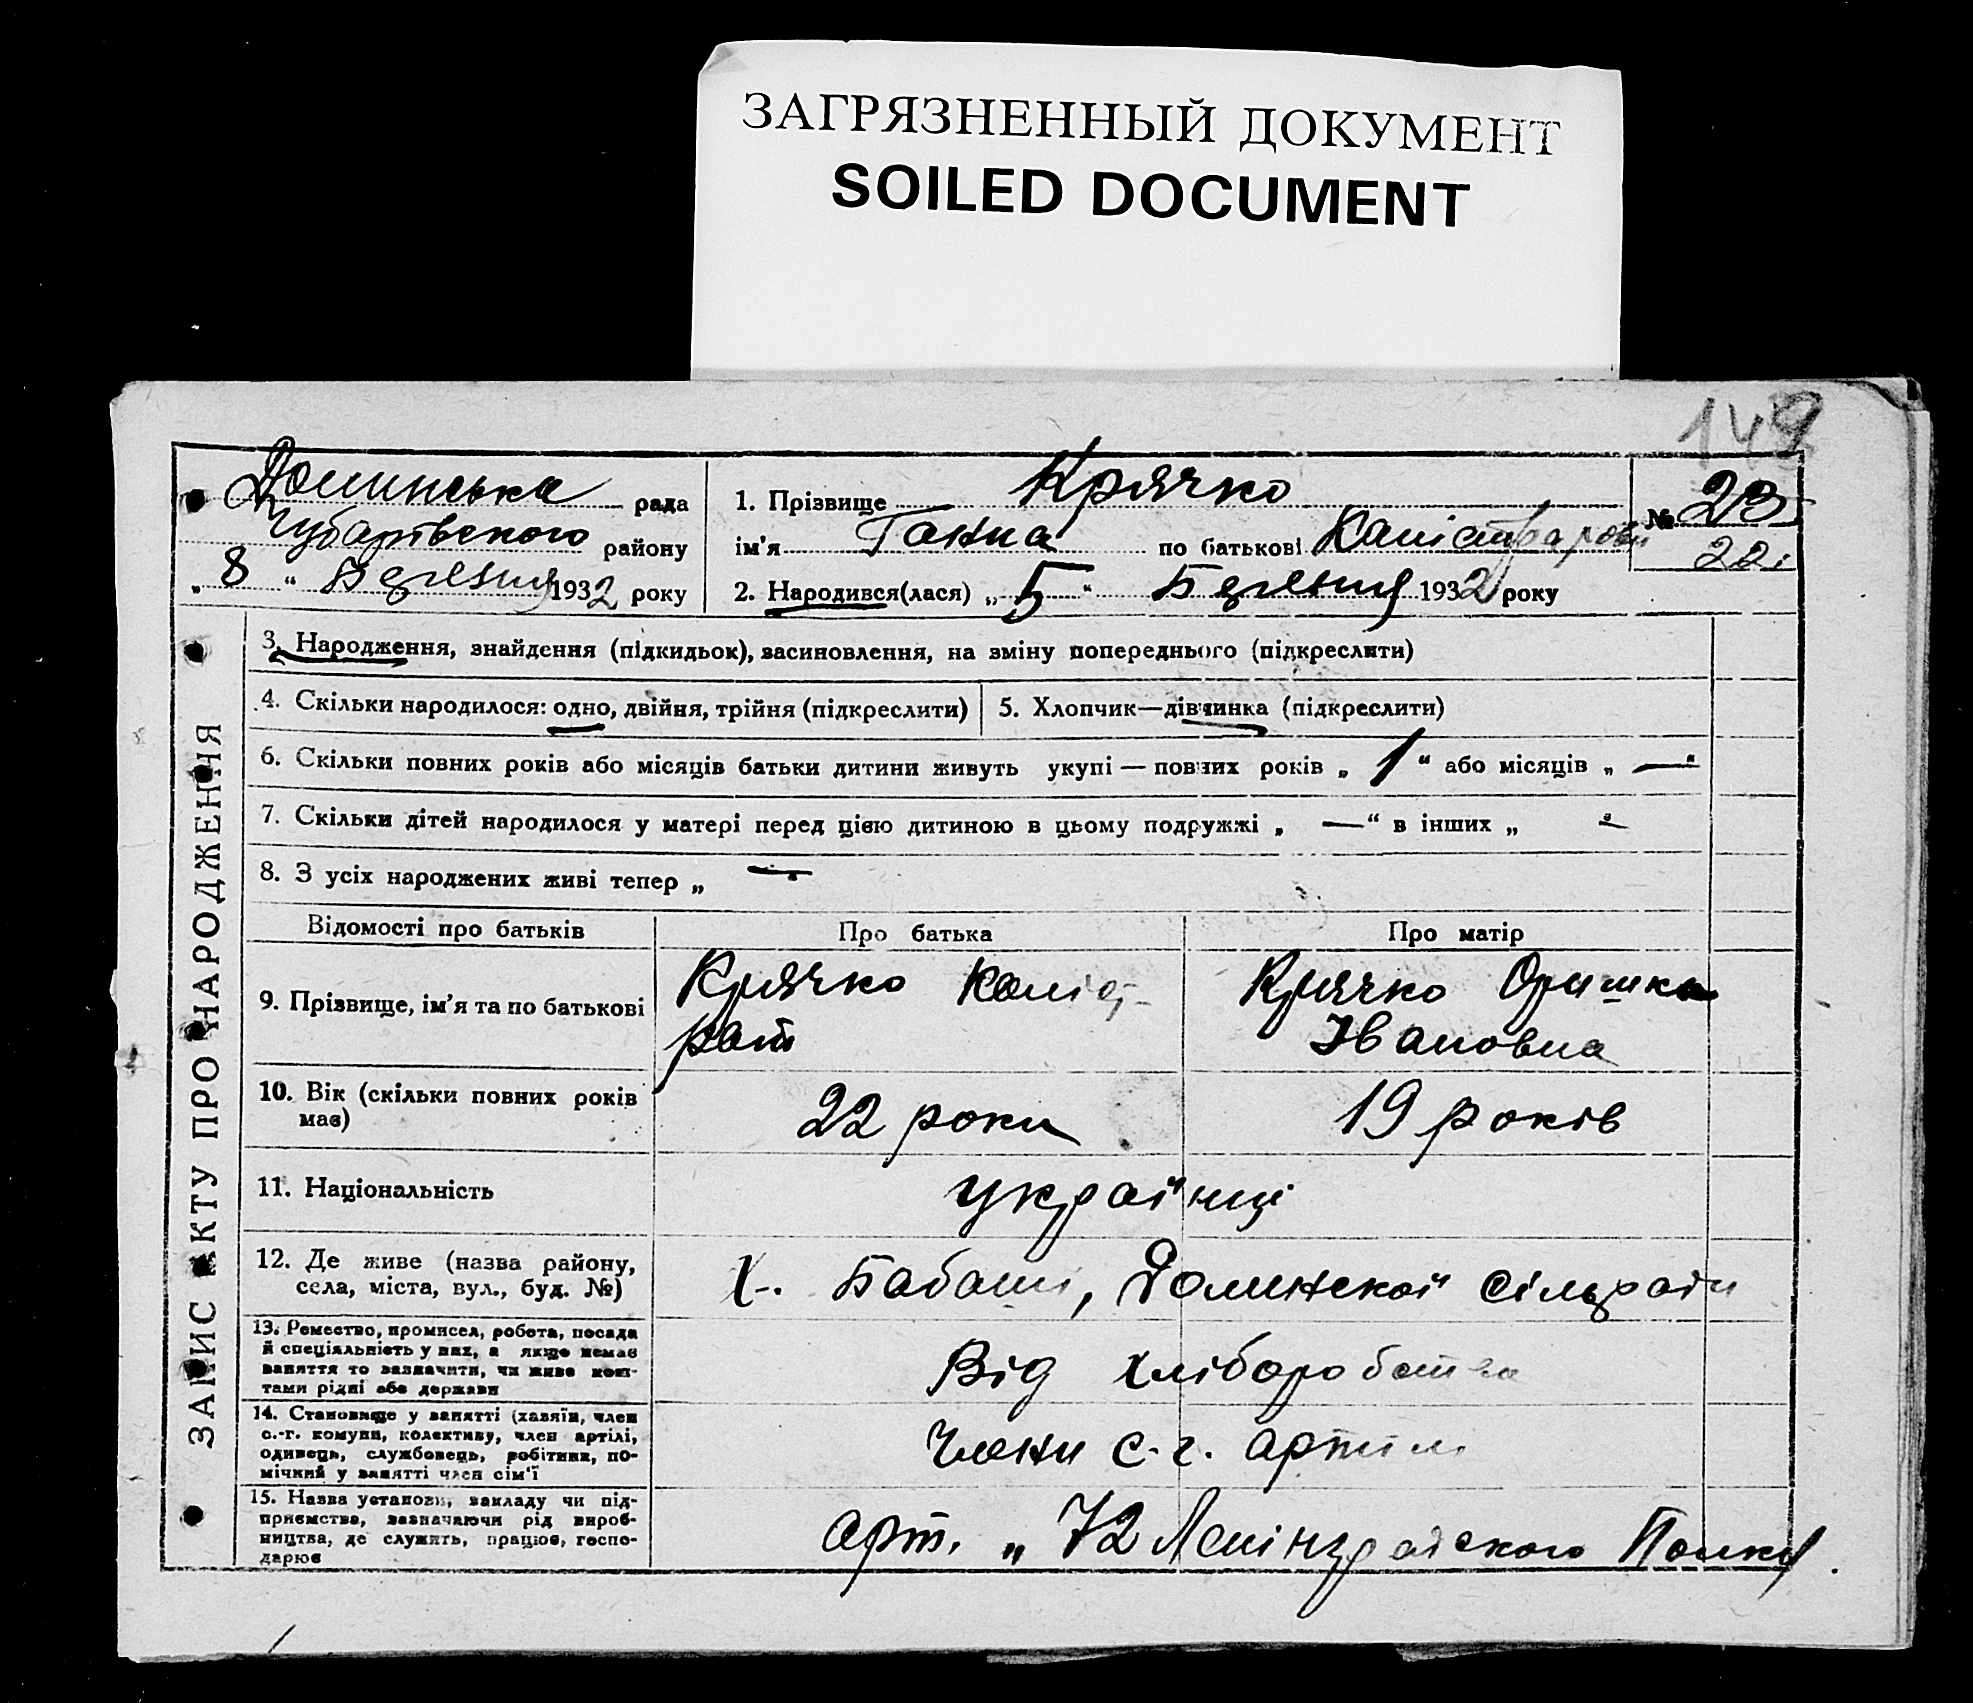 ЗАГРЯЗНЕННЫЙ ДОКУМЕНТ
SOILED DOCUMENT
149
Долинська рада
Чубарівського району
„ 8 “ Березня 1932 року
1. Прізвище Крячко
ім'я Ганна по батькові Калістратовн
№ 23
22
2. Народився(лася) „ 5 “ Березня 1932 року
ЗАПИС АКТУ ПРО НАРОДЖЕННЯ
3. Народження, знайдення (підкидьок), засиновлення, на зміну попереднього (підкреслити)
4. Скільки народилося: одно, двійня, трійня (підкреслити)
5. Хлопчик—дівчинка (підкреслити)
6. Скільки повних років або місяців батьки дитини живуть укупі — повних років „ 1 “ або місяців „ — “
7. Скільки дітей народилося у матері перед цією дитиною в цьому подружжі „ — “ в інших „ — “
8. З усіх народжених живі тепер „ — “
Відомості про батьків
Про батька
Про матір
9. Прізвище, ім'я та по батькові
Крячко Каліст-
рат
Крячко Оришка
Івановна
10. Вік (скільки повних років
має)
22 роки
19 років
11. Національність
українці
12. Де живе (назва району,
села, міста, вул., буд. №)
х. Бабаши, Долинскої сільради
13. Ремество, промисел, робота, посада
й спеціяльність у них, а якщо немає
заняття то зазначити, чи живе кош-
тами рідні або держави
Від хліборобства
14. Становище у занятті (хазяїн, член
с.-г. комуни, колективу, член артілі,
одинець, службовець, робітник, по-
мічний у занятті член сім'ї
Члени с.-г. артили
15. Назва установи, закладу чи під-
приємства, зазначаючи рід вироб-
ництва, де служить, працює, госпо-
дарює
арт. „ 72 Ленінградского Полка.